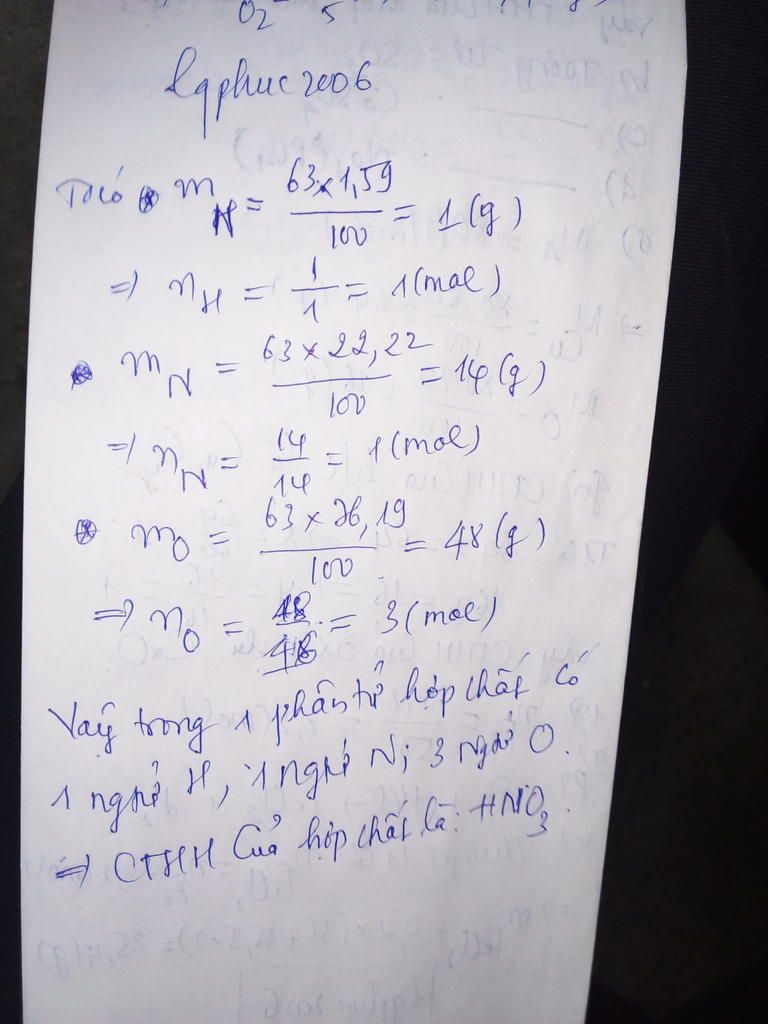 O₂ 5
lqphuc2006
Ta có • m_H = 63×1,59/100 = 1(g)
=> n_H = 1/1 = 1(mol)
• m_N = 63×22,22/100 = 14(g)
=> n_N = 14/14 = 1(mol)
• m_O = 63×76,19/100 = 48(g)
=> n_O = 48/16 = 3(mol)
Vaỹ trong 1 phân tử hợp chất có
1 ngtử H, 1 ngtử N; 3 ngtử O.
=> CTHH Của hợp chất là: HNO₃.